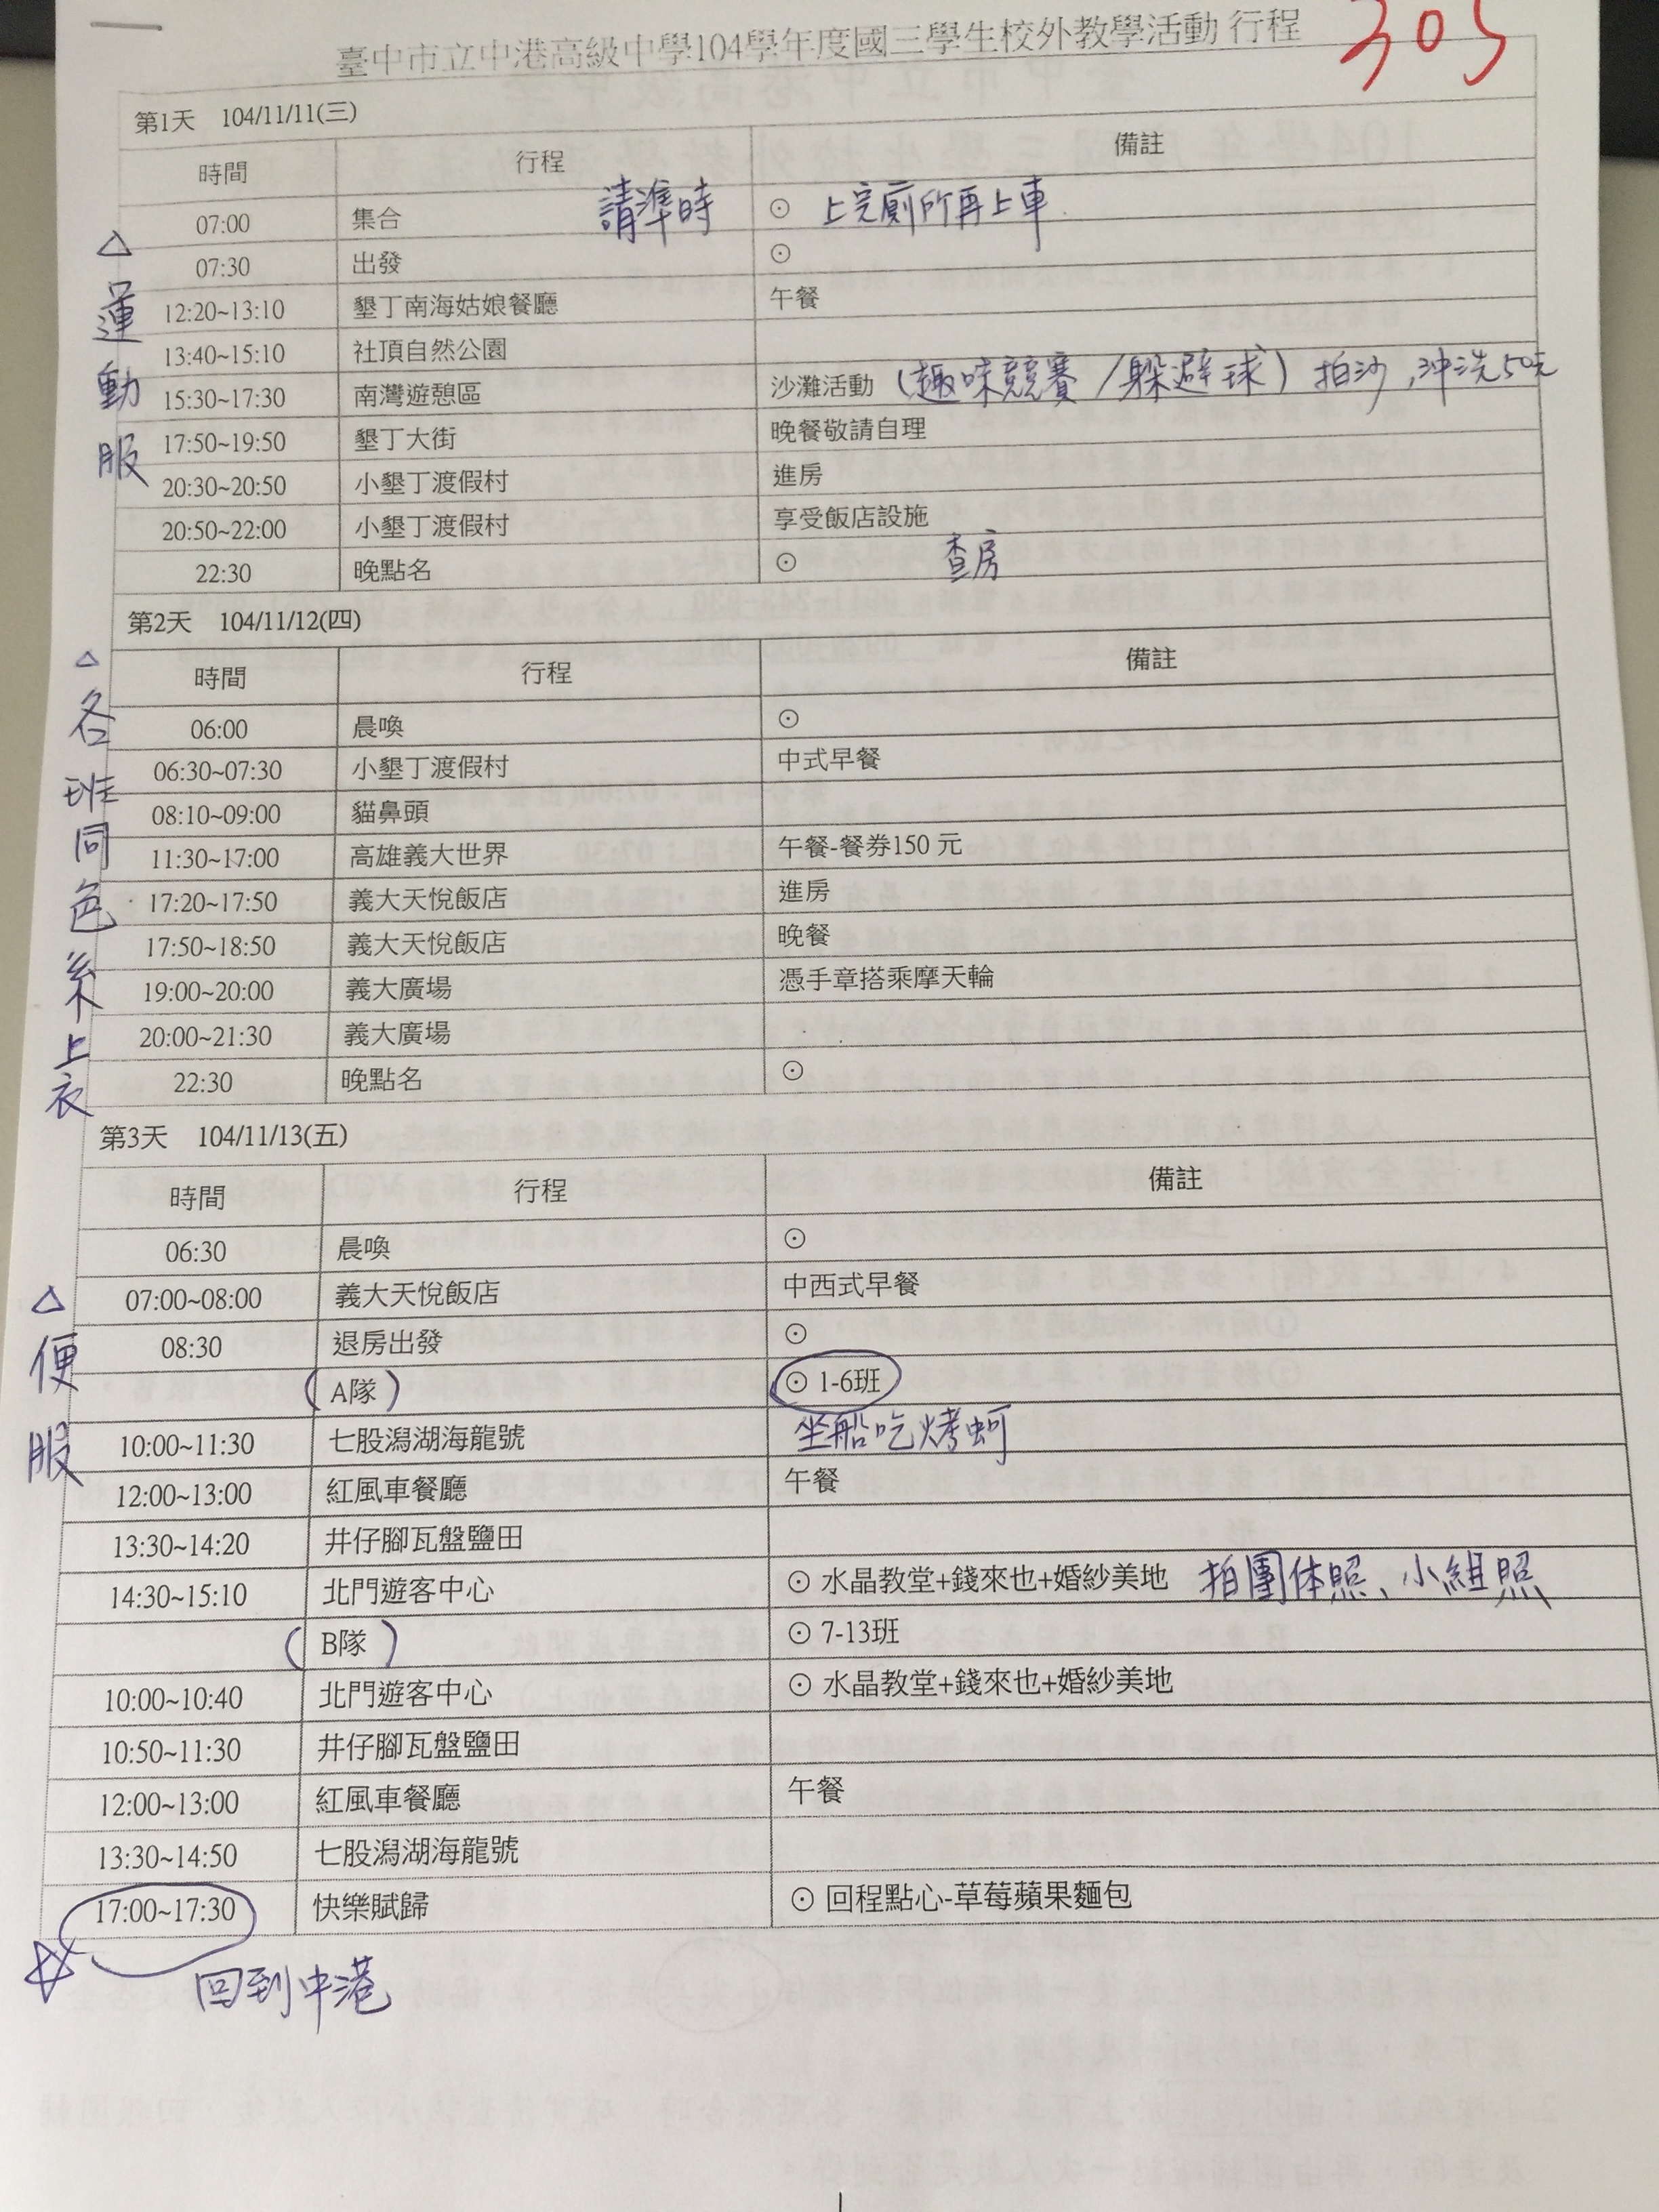 305
臺中市立中港高級中學104學年度國三學生校外教學活動 行程
第1天 104/11/11(三)
時間 行程 備註
07:00 集合 請準時 ⊙ 上完廁所再上車
07:30 出發 ⊙
12:20~13:10 墾丁南海姑娘餐廳 午餐
13:40~15:10 社頂自然公園
15:30~17:30 南灣遊憩區 沙灘活動 (趣味競賽/躲避球) 拍沙,沖洗50元
17:50~19:50 墾丁大街 晚餐敬請自理
20:30~20:50 小墾丁渡假村 進房
20:50~22:00 小墾丁渡假村 享受飯店設施
22:30 晚點名 ⊙ 查房
△運動服
第2天 104/11/12(四)
時間 行程 備註
06:00 晨喚 ⊙
06:30~07:30 小墾丁渡假村 中式早餐
08:10~09:00 貓鼻頭
11:30~17:00 高雄義大世界 午餐-餐券150 元
17:20~17:50 義大天悅飯店 進房
17:50~18:50 義大天悅飯店 晚餐
19:00~20:00 義大廣場 憑手章搭乘摩天輪
20:00~21:30 義大廣場
22:30 晚點名 ⊙
△各班同色系上衣
第3天 104/11/13(五)
時間 行程 備註
06:30 晨喚 ⊙
07:00~08:00 義大天悅飯店 中西式早餐
08:30 退房出發 ⊙
(A隊) ⊙ 1-6班
10:00~11:30 七股潟湖海龍號 坐船吃烤蚵
12:00~13:00 紅風車餐廳 午餐
13:30~14:20 井仔腳瓦盤鹽田
14:30~15:10 北門遊客中心 ⊙ 水晶教堂+錢來也+婚紗美地 拍團体照、小組照
(B隊) ⊙ 7-13班
10:00~10:40 北門遊客中心 ⊙ 水晶教堂+錢來也+婚紗美地
10:50~11:30 井仔腳瓦盤鹽田
12:00~13:00 紅風車餐廳 午餐
13:30~14:50 七股潟湖海龍號
17:00~17:30 快樂賦歸 ⊙ 回程點心-草莓蘋果麵包
△便服
☆ 回到中港